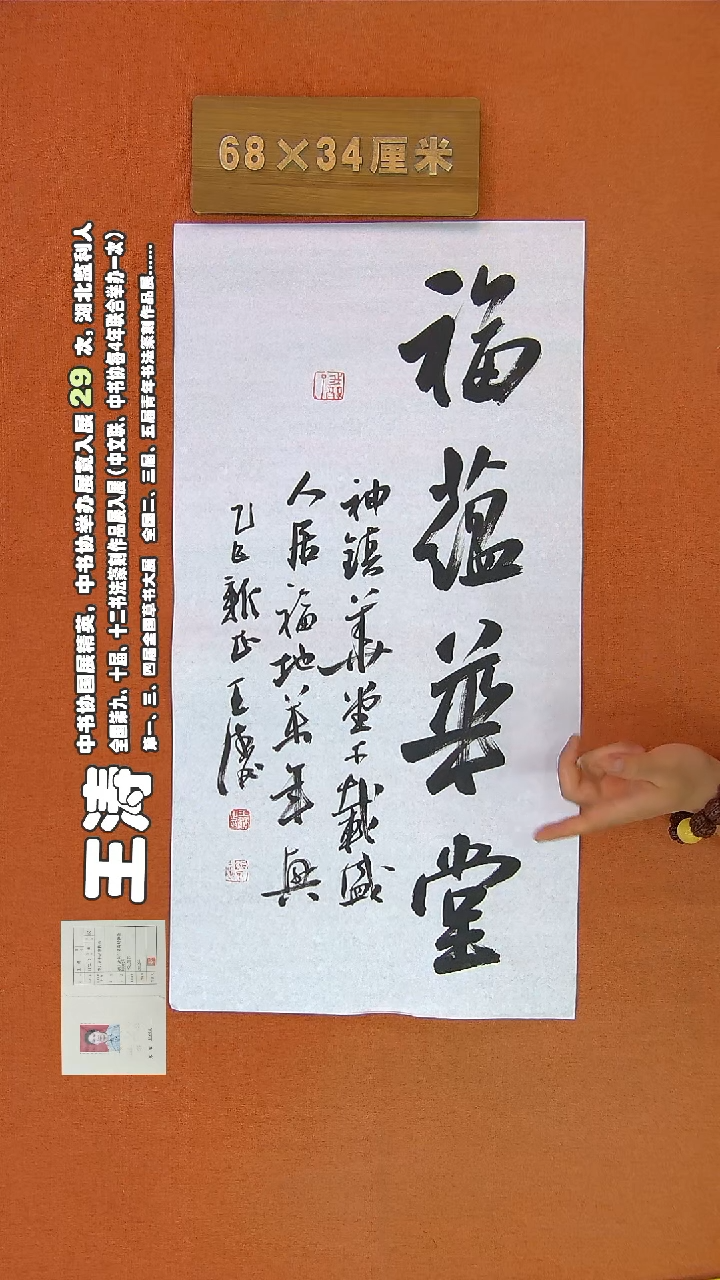 68×34厘米
福蕴华堂
神镇华堂千载盛
人居福地万年兴
乙巳新正王涛书
王涛
中书协国展精英，中书协举办展赛入展29次，湖北监利人
全国第九、十届、十二书法篆刻作品展入展（中文联、中书协每4年联合举办一次）
第一、三、四届全国草书大展 全国二、三届、五届青年书法篆刻作品展……